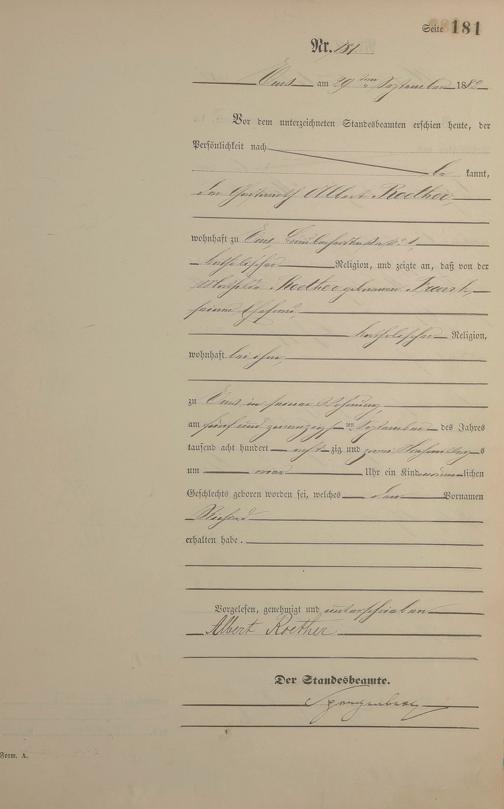 Seite 181
Nr. 181
Ems am 29ten September 188
Vor dem unterzeichneten Standesbeamten erschien heute, der
Persönlichkeit nach
be kannt,
der Albert Roether,
wohnhaft zu Ems,
katholischer Religion, und zeigte an, daß von der
Roether geborenen
seiner Ehefrau,
katholischer Religion,
wohnhaft bei ihm,
zu Ems in seiner Wohnung,
am fünf und zwanzigsten September des Jahres
tausend acht hundert acht zig und zwei s
um Uhr ein Kind männ lichen
Geschlechts geboren worden sei, welches den Vornamen
Richard
erhalten habe.
Vorgelesen, genehmigt und unterschrieben
Albert Roether
Der Standesbeamte.
Spangenberg
Form. A.